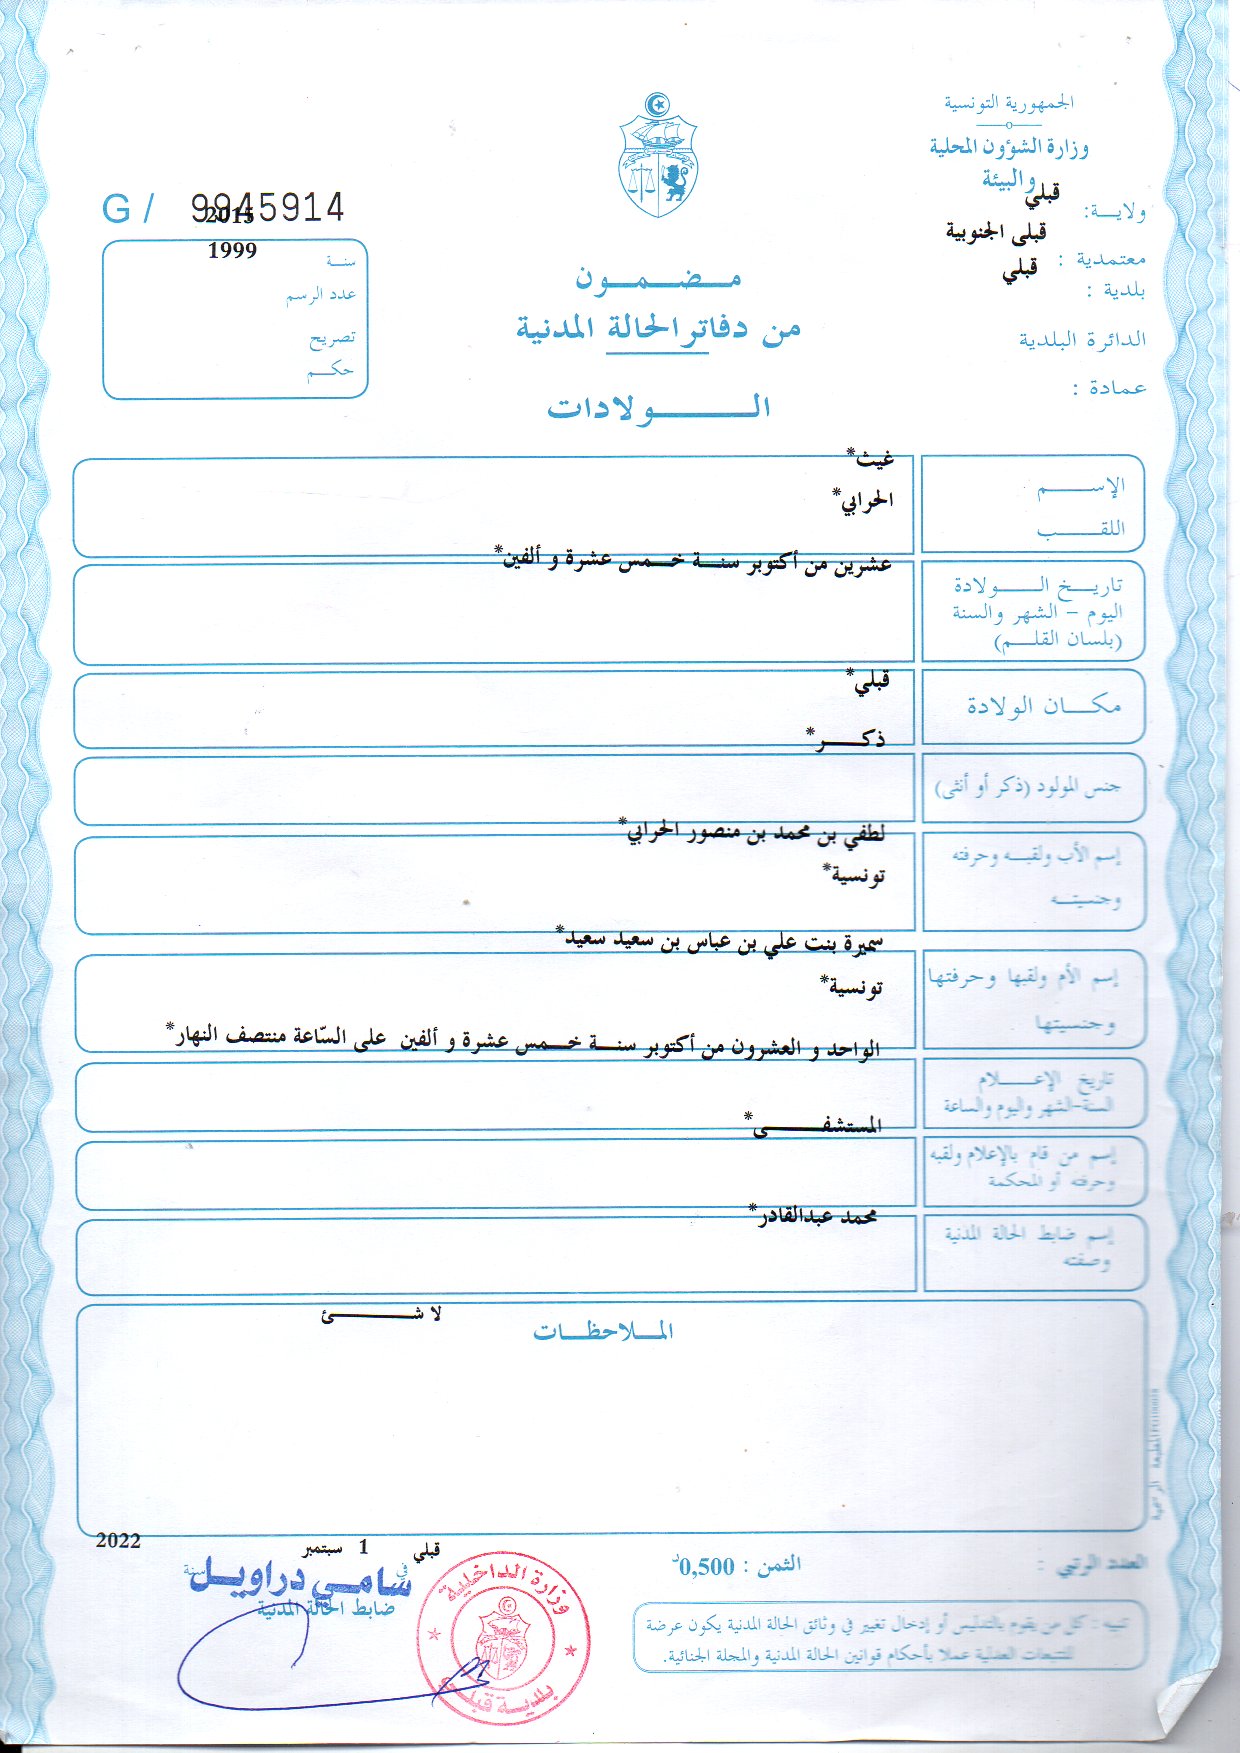 الجمهورية التونسية
وزارة الشؤون المحلية
والبيئة
ولايـــة: قبلي
معتمدية : قبلى الجنوبية
بلدية : قبلي
الدائرة البلدية
عمادة :
G / 9945914
2015
1999
سنــة
عدد الرسم
تصريح
حكـــم
مـــضـــمـــون
من دفاتر الحالة المدنية
الـــــــولادات
الإســـــم غيث*
اللقـــــب الحرابي*
تاريـــخ الـــــولادة
اليوم – الشهر والسنة
(بلسان القلـــم)
عشرين من أكتوبر سنـــة خـــمس عشرة و ألفين*
مكـــان الولادة قبلي*
جنس المولود (ذكر أو أنثى) ذكـــــر*
إسم الأب ولقبـــه وحرفته
وجنسيتـــه
لطفي بن محمد بن منصور الحرابي*
تونسية*
إسم الأم ولقبها وحرفتها
وجنسيتها
سميرة بنت علي بن عباس بن سعيد سعيد*
تونسية*
تاريخ الإعـــــلام
السنة-الشهر واليوم والساعة
الواحد و العشرون من أكتوبر سنـــة خـــمس عشرة و ألفين على السّاعة منتصف النهار*
إسم من قام بالإعلام ولقبه
وحرفته أو المحكمة
المستشفـــــــى*
إسم ضابط الحالة المدنية
وصفته
محمد عبدالقادر*
المـــلاحظـــات
لا شـــــــــئ
المطبعة الرسمية
العدد الرتبي :
الثمن : 0,500د
قبلي في 1 سبتمبر سنة 2022
سامـي دراويـل
ضابط الحالة المدنية
وزارة الداخلية
بلديـة قبلي
تنبيه : كل من يقوم بالتدليس أو إدخال تغيير في وثائق الحالة المدنية يكون عرضة
للتتبعات العدلية عملا بأحكام قوانين الحالة المدنية والمجلة الجنائية.